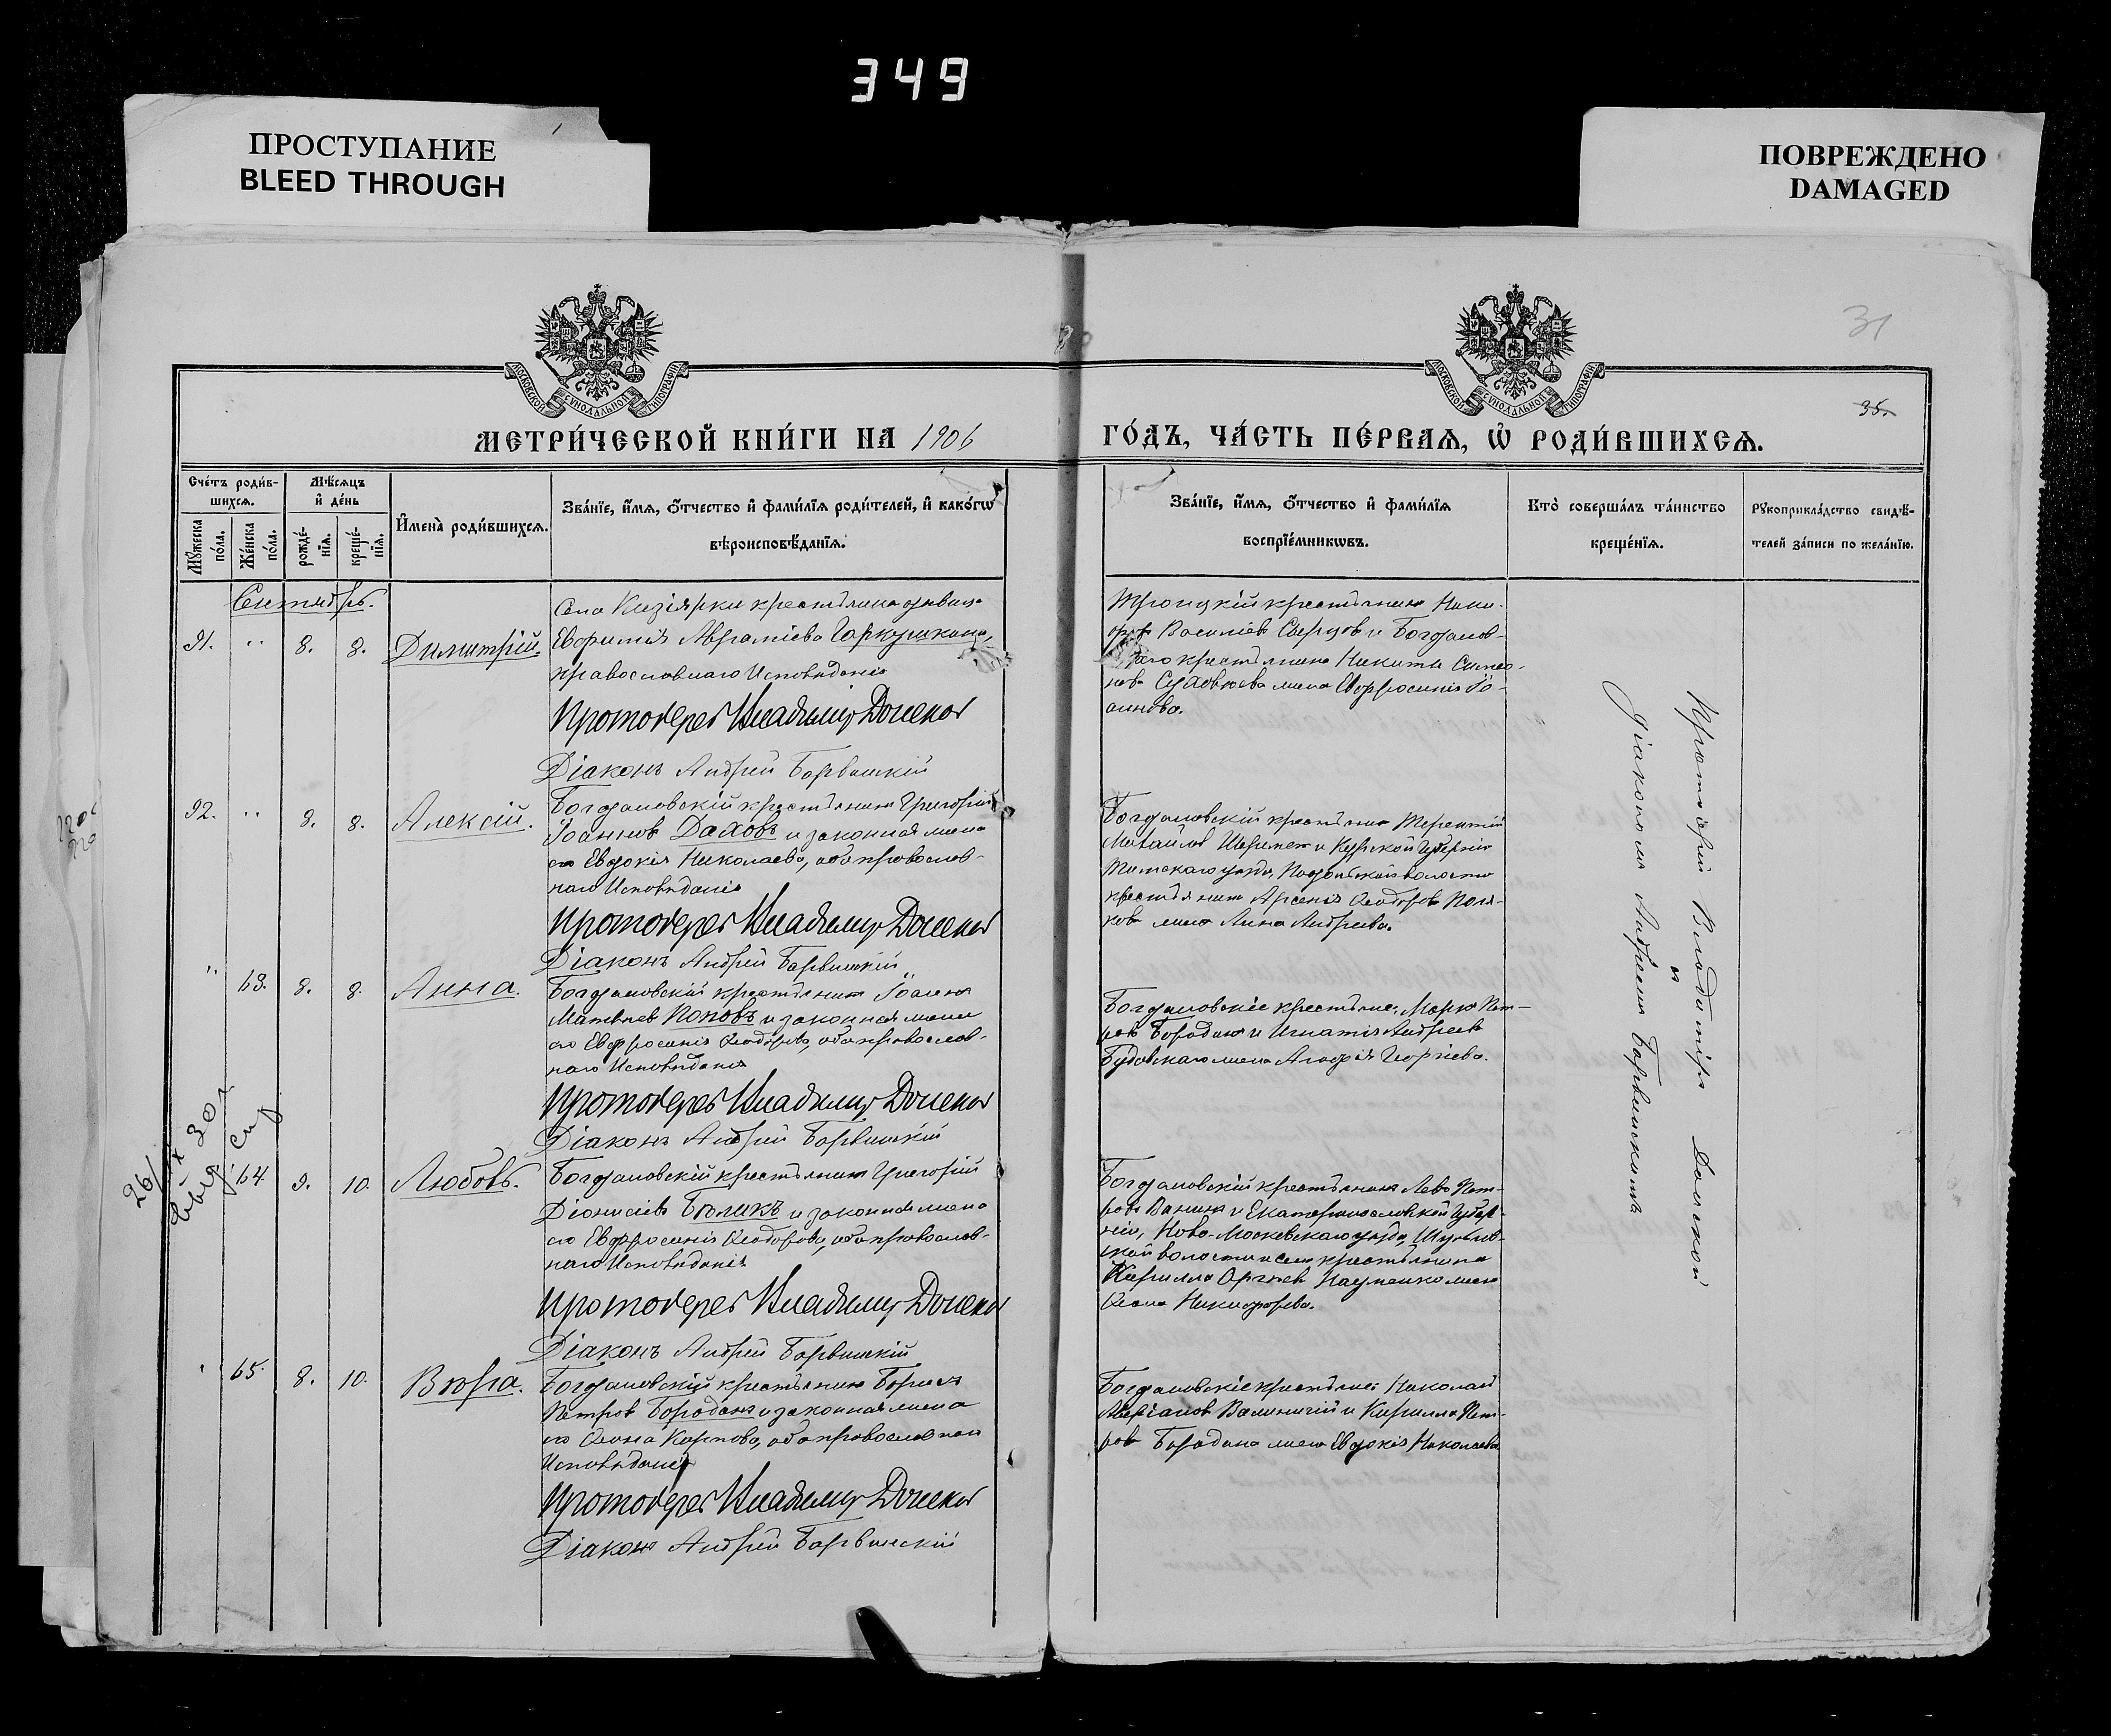 349
ПРОСТУПАНИЕ
BLEED THROUGH
ПОВРЕЖДЕНО
DAMAGED
31
35.
МОСКОВСКОЙ СѴНОДАЛЬНОЙ ТИПОГРАФІИ
МОСКОВСКОЙ СѴНОДАЛЬНОЙ ТИПОГРАФІИ
МЕТРИ́ЧЕСКОЙ КНИ́ГИ НА 1906
ГО́ДЪ, ЧА́СТЬ ПЕ́РВАЯ, Ѡ҆ РОДИ́ВШИХСЯ.
Сче́тъ роди́в-
шихся.
Мѣ́сяцъ
и҆ де́нь
Мꙋ́жеска
по́ла.
Же́нска
по́ла.
рожде́-
нїя.
креще́-
нїя.
И҆мена̀ роди́вшихся.
Зва́нїе, и҆́мя, ѻ҆́тчество и҆ фами́лїя роди́телей, и҆ како́гѡ
вѣроисповѣ́данїя.
Зва́нїе, и҆́мя, ѻ҆́тчество и҆ фами́лїя
воспрїе́мникѡвъ.
Кто̀ соверша́лъ та́инство
креще́нїя.
Рꙋкоприкла́дство свидѣ́-
телей за́писи по жела́нїю.
Сентябрь.
91. " 8. 8. Димитрій.
Села Кизіярки крестьянка девица
Евфимія Авраміева Гаркушкина,
православнаго Исповѣданія
Протоіерей Владиміръ Донской
Діаконъ Андрей Барвинскій
Троицкій крестьянинъ
Василіевъ и Богданов-
крестьянина Никиты Симео-
нова жена Евфросинія Іо-
аннова.
92. " 8. 8. Алексій.
Богдановскій крестьянинъ Григорій
Іоанновъ Даховъ и законная жена
его Евдокія Николаева, оба православ-
наго Исповѣданія
Протоіерей Владиміръ Донской
Діаконъ Андрей Барвинскій
Богдановскій крестьянинъ Терентій
Михайловъ Шереметъ и Курской Губерніи
Тимскаго уѣзда, волости
крестьянина Арсенія Ѳеодорова Поля-
кова жена Анна Андреева.
" 63. 8. 8. Анна.
Богдановскій крестьянинъ Іоаннъ
Матвѣевъ Поповъ и законная жена
его Евфросинія Ѳеодорова, оба православ-
наго Исповѣданія
Протоіерей Владиміръ Донской
Діаконъ Андрей Барвинскій
Богдановскіе крестьяне: Марко Пет-
ровъ Бородинъ и Игнатія Андреева
жена Агафія Георгіева.
64. 9. 10. Любовь.
Богдановскій крестьянинъ Григорій
Діонисіевъ Бѣликъ и законная жена
его Евфросинія Ѳеодорова, оба православ-
наго Исповѣданія
Протоіерей Владиміръ Донской
Діаконъ Андрей Барвинскій
Богдановскій крестьянинъ Левъ Пет-
ровъ Ванинъ и Екатеринославской Губер-
ніи, Ново-Московскаго уѣзда,
волости и села крестьянина
Кирилла Науменко жена
Ѳеодосія Никифорова.
65. 8. 10. Вѣра.
Богдановскій крестьянинъ Борисъ
Петровъ Бородинъ и законная жена
его Карпова, оба православнаго
Исповѣданія
Протоіерей Владиміръ Донской
Діаконъ Андрей Барвинскій
Богдановскіе крестьяне: Николай
Аверіановъ и Кирилла Пет-
рова Бородина жена Евдокія Николаева
Протоіерей Владиміръ Донской
и
Діакономъ Андреемъ Барвинскимъ